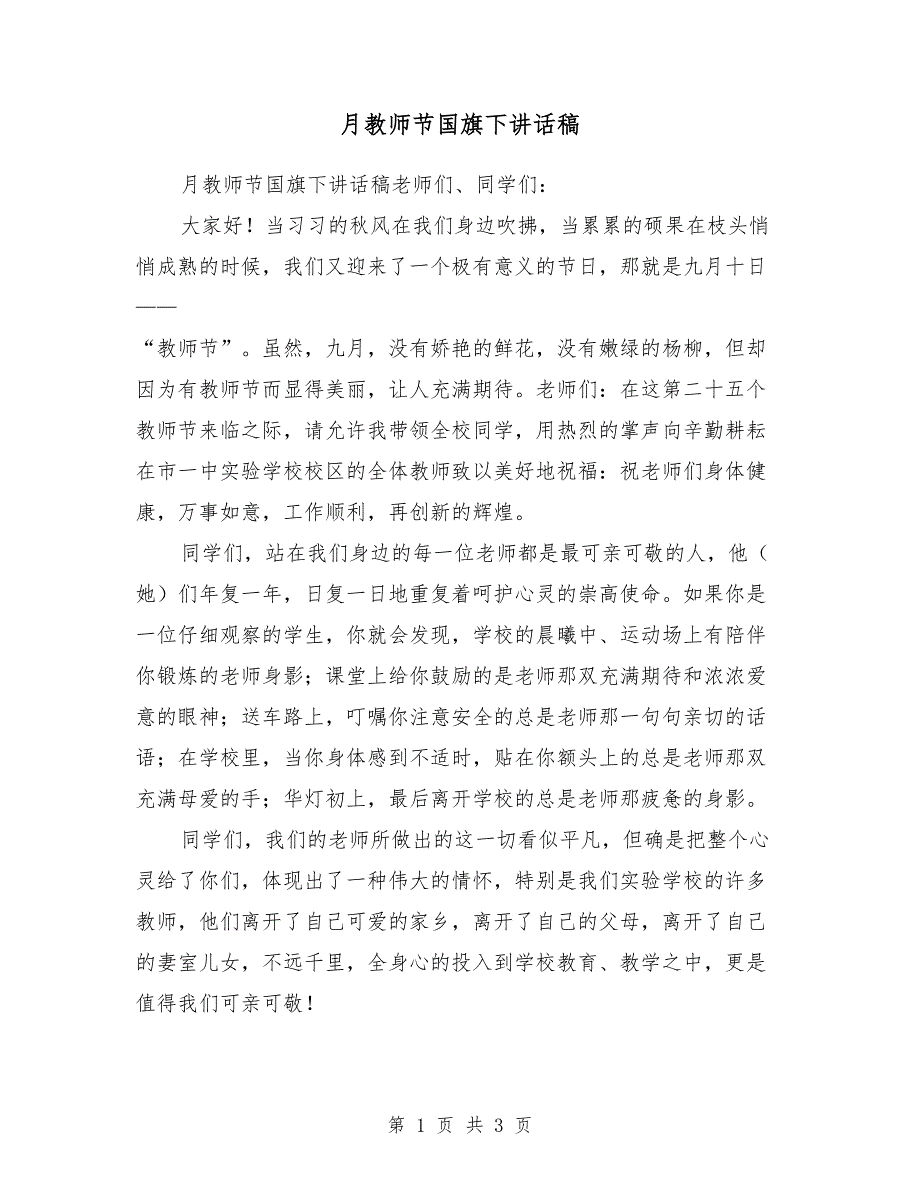 月教师节国旗下讲话稿
月教师节国旗下讲话稿老师们、同学们：
大家好！当习习的秋风在我们身边吹拂，当累累的硕果在枝头悄
悄成熟的时候，我们又迎来了一个极有意义的节日，那就是九月十日
——
“教师节”。虽然，九月，没有娇艳的鲜花，没有嫩绿的杨柳，但却
因为有教师节而显得美丽，让人充满期待。老师们：在这第二十五个
教师节来临之际，请允许我带领全校同学，用热烈的掌声向辛勤耕耘
在市一中实验学校校区的全体教师致以美好地祝福：祝老师们身体健
康，万事如意，工作顺利，再创新的辉煌。
同学们，站在我们身边的每一位老师都是最可亲可敬的人，他（
她）们年复一年，日复一日地重复着呵护心灵的崇高使命。如果你是
一位仔细观察的学生，你就会发现，学校的晨曦中、运动场上有陪伴
你锻炼的老师身影；课堂上给你鼓励的是老师那双充满期待和浓浓爱
意的眼神；送车路上，叮嘱你注意安全的总是老师那一句句亲切的话
语；在学校里，当你身体感到不适时，贴在你额头上的总是老师那双
充满母爱的手；华灯初上，最后离开学校的总是老师那疲惫的身影。
同学们，我们的老师所做出的这一切看似平凡，但确是把整个心
灵给了你们，体现出了一种伟大的情怀，特别是我们实验学校的许多
教师，他们离开了自己可爱的家乡，离开了自己的父母，离开了自己
的妻室儿女，不远千里，全身心的投入到学校教育、教学之中，更是
值得我们可亲可敬！
第 1 页 共 3 页